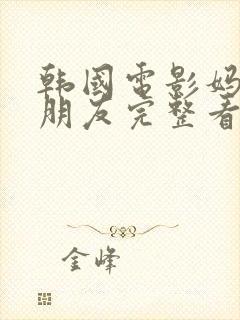 韩国电影妈
朋友完整看
金峰